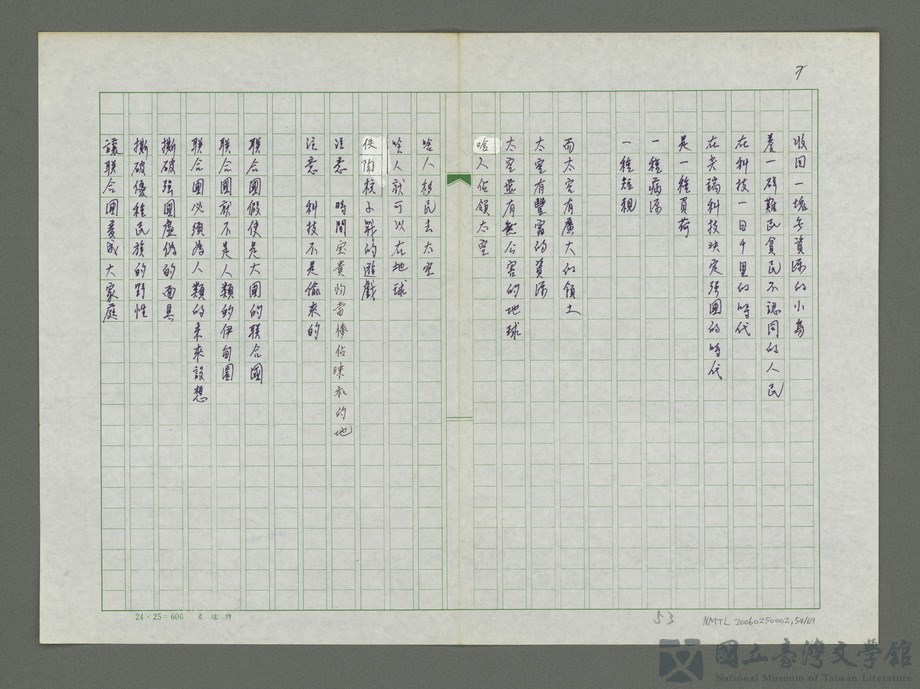 收回一塊無資源的小島
養一群難民貧民不認同的人民
在科技一日千里的時代
在尖端科技決定強國的時代
是一種負荷
一種病源
一種短視
而太空有廣大的領土
太空有豐富的資源
太空並有無公害的地球
啥人佔領太空
啥人移民去太空
啥人就可以在地球
注意 時間宝貴
注意 科技不是偷來的
聯合國假使是大國的聯合國
聯合國就不是人類的伊甸園
聯合國必須為人類的未來設想
撕破強國虛偽的面具
撕破優種民族的野性
讓聯合國變成大家庭
24×25=600
53
NMTL 20060250002,54/69
國立臺灣文學館
National Museum of Taiwan Literature